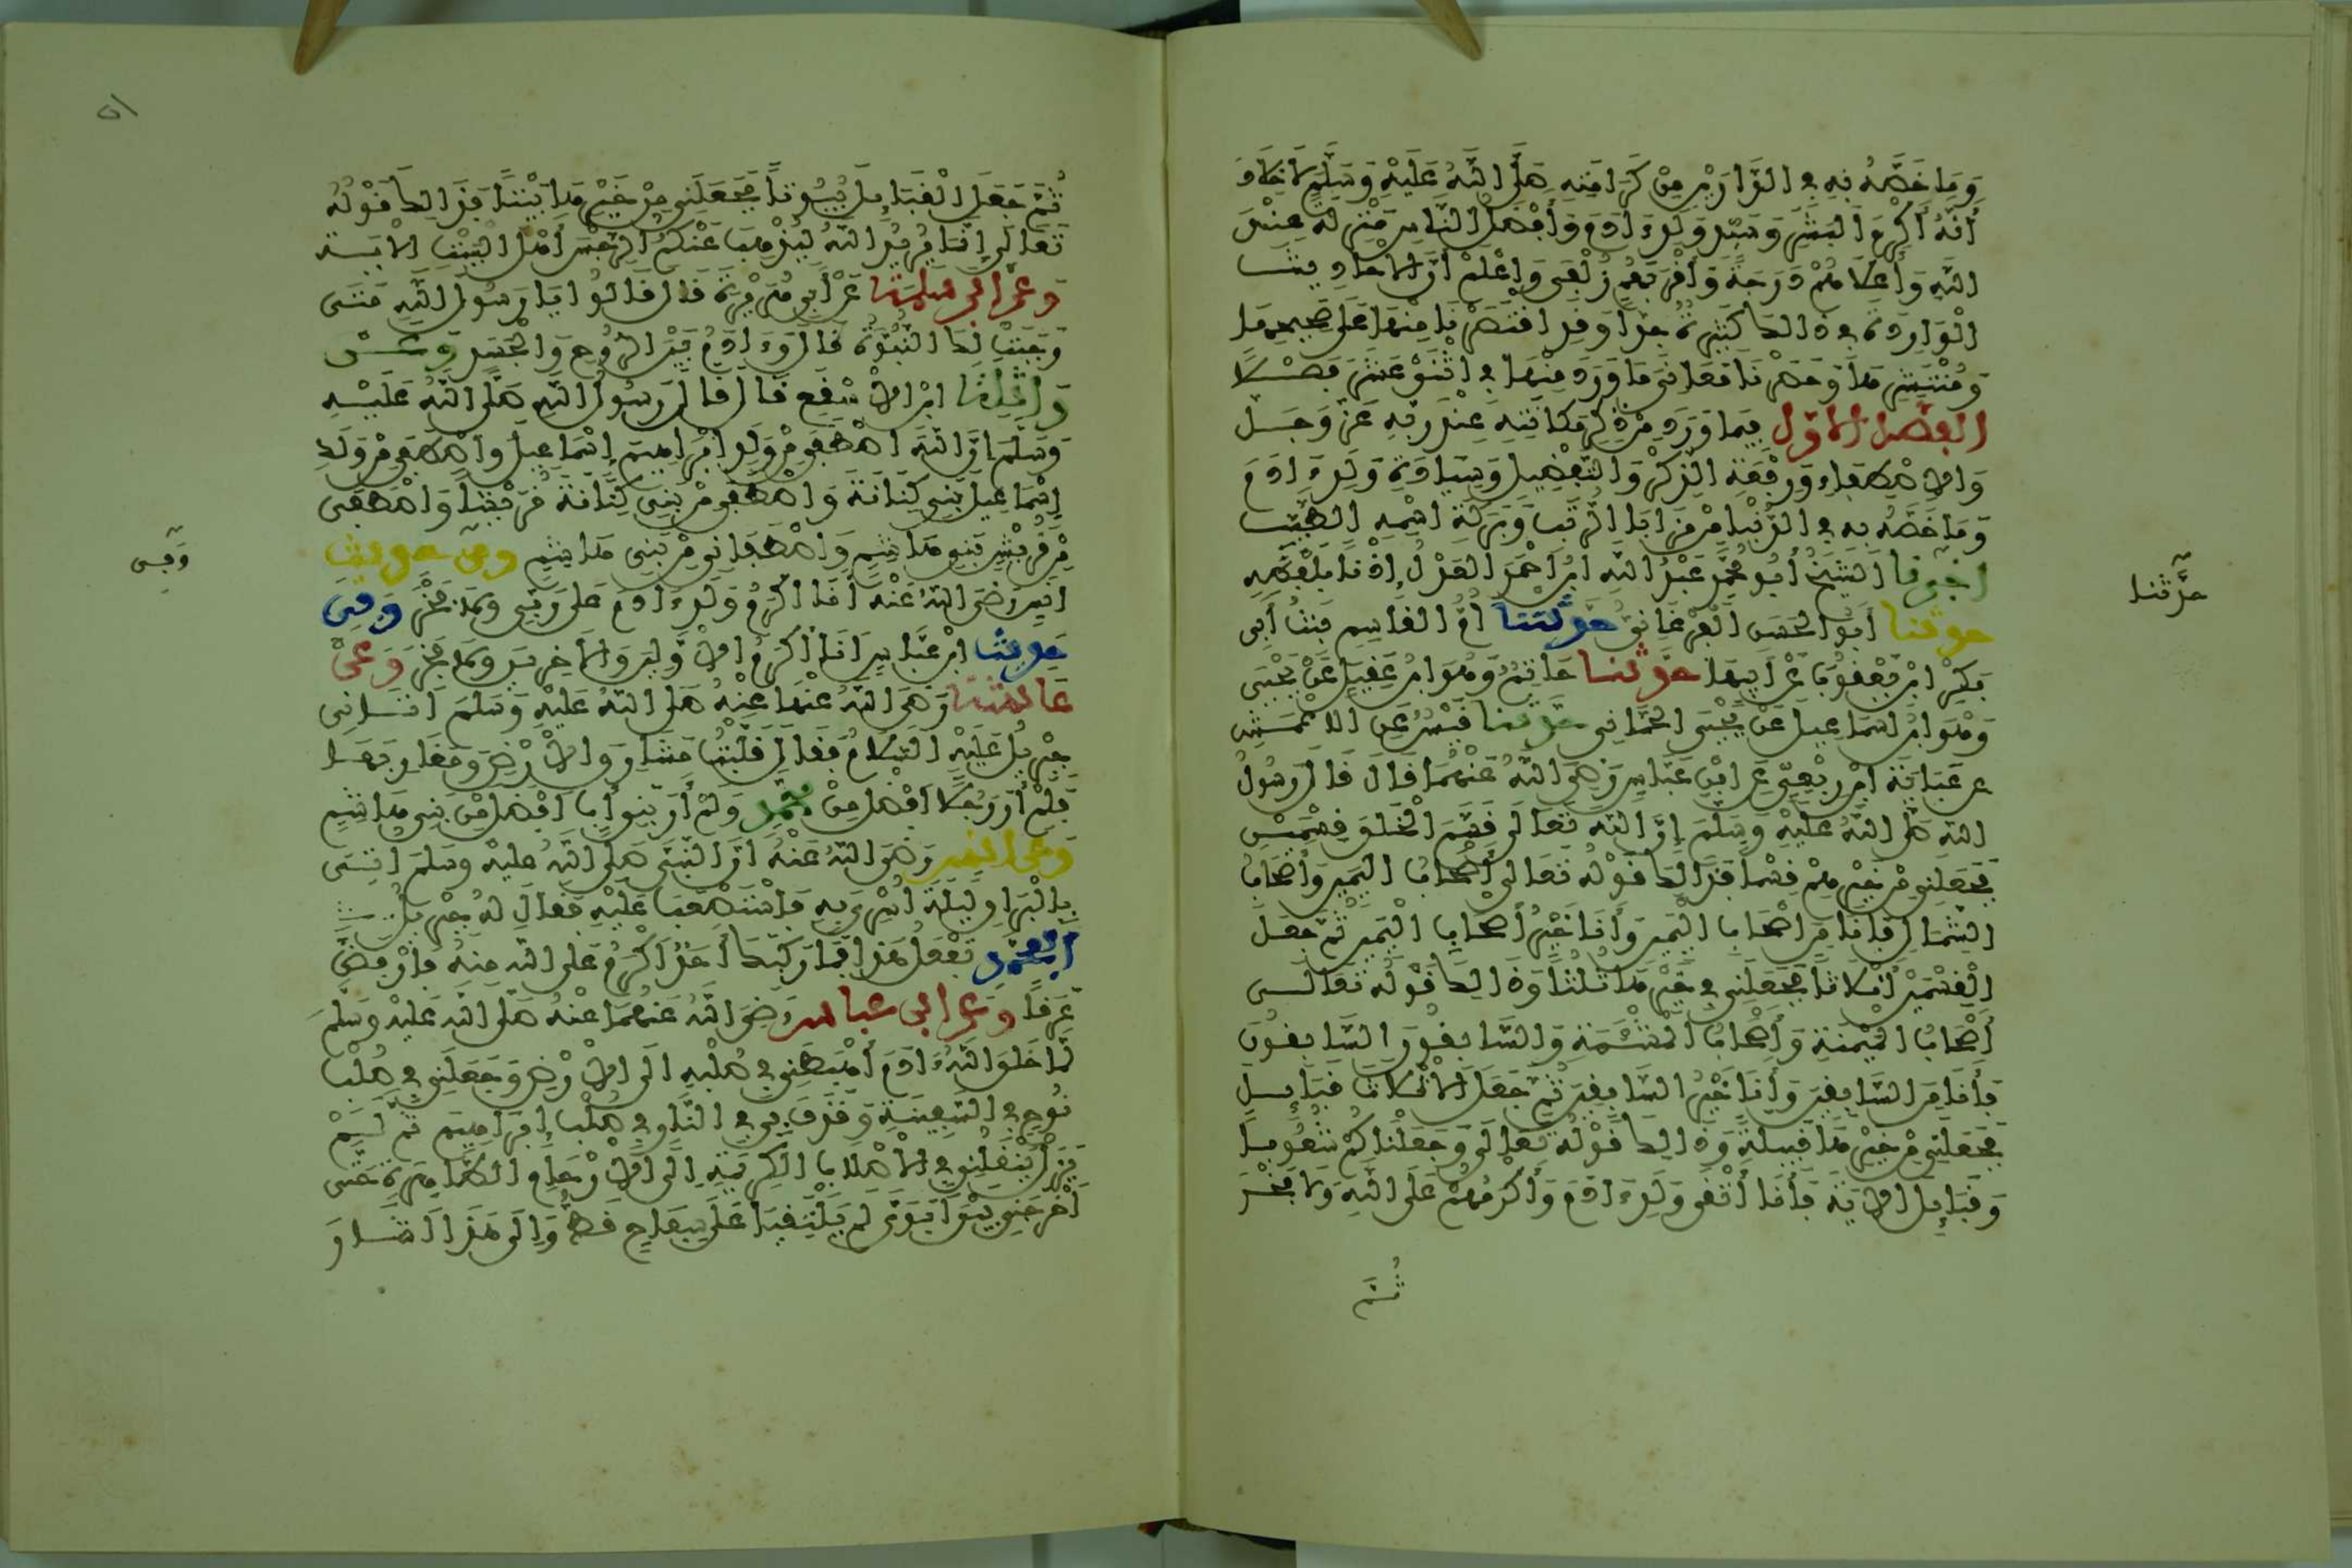 وَمَا خَصَّهُ بِهِ فِي الدَّارَيْنِ مِنْ كَرَامَتِهِ صَلَّى اللَّهُ عَلَيْهِ وَسَلَّمَ لَا خِلَافَ
أَنَّهُ أَكْرَمُ الْبَشَرِ وَسَيِّدُ وَلَدِ ءَادَمَ وَأَفْضَلُ النَّاسِ مَنْزِلَةً عِنْدَ
اللَّهِ وَأَعْلَاهُمْ دَرَجَةً وَأَقْرَبُهُمْ زُلْفَى وَاعْلَمْ أَنَّ الْأَحَادِيثَ
الْوَارِدَةَ فِي ذَلِكَ كَثِيرَةٌ جِدًّا وَقَدِ اقْتَصَرْنَا مِنْهَا عَلَى صَحِيحِهَا
وَمُنْتَشِرِهَا وَحَصَرْنَا مَعَانِيَ مَا وَرَدَ مِنْهَا فِي اثْنَيْ عَشَرَ فَصْلًا
الفصل الاول فِيمَا وَرَدَ مِنْ ذِكْرِ مَكَانَتِهِ عِنْدَ رَبِّهِ عَزَّ وَجَلَّ
وَالِاصْطِفَاءِ وَرِفْعَةِ الذِّكْرِ وَالتَّفْضِيلِ وَسِيَادَةِ وَلَدِ ءَادَمَ
وَمَا خَصَّهُ بِهِ فِي الدُّنْيَا مِنْ مَزَايَا الرُّتَبِ وَبَرَكَةِ اسْمِهِ الطَّيِّبِ
اخبرنا الشَّيْخُ أَبُو مُحَمَّدٍ عَبْدُ اللَّهِ ابْنُ أَحْمَدَ الْعَدْلُ إِذْنًا بِلَفْظِهِ
حدثنا أَبُو الْحَسَنِ الْفَرْغَانِيُّ حدثتنا أُمُّ الْقَاسِمِ بِنْتُ أَبِي
بَكْرِ ابْنِ يَعْقُوبَ عَنْ أَبِيهَا حدثنا حَاتِمٌ وَهُوَ ابْنُ عَقِيلٍ عَنْ يَحْيَى
وَهُوَ ابْنُ إِسْمَاعِيلَ عَنْ يَحْيَى الْحِمَّانِي حدثنا قَيْسٌ عَنِ الْأَعْمَشِ
عَنْ عَبَايَةَ ابْنِ رِبْعِيٍّ عَنِ ابْنِ عَبَّاسٍ رَضِيَ اللَّهُ عَنْهُمَا قَالَ قَالَ رَسُولُ
اللَّهِ صَلَّى اللَّهُ عَلَيْهِ وَسَلَّمَ إِنَّ اللَّهَ تَعَالَى قَسَمَ الْخَلْقَ قِسْمَيْنِ
فَجَعَلَنِي مِنْ خَيْرِهِمْ قِسْمًا فَذَلِكَ قَوْلُهُ تَعَالَى أَصْحَابُ الْيَمِينِ وَأَصْحَابُ
الشِّمَالِ فَأَنَا مِنْ أَصْحَابِ الْيَمِينِ وَأَنَا خَيْرُ أَصْحَابِ الْيَمِينِ ثُمَّ جَعَلَ
الْقِسْمَيْنِ أَثْلَاثًا فَجَعَلَنِي فِي خَيْرِهَا ثُلُثًا وَذَلِكَ قَوْلُهُ تَعَالَى
أَصْحَابُ الْمَيْمَنَةِ وَأَصْحَابُ الْمَشْئَمَةِ وَالسَّابِقُونَ السَّابِقُونَ
فَأَنَا مِنَ السَّابِقِينَ وَأَنَا خَيْرُ السَّابِقِينَ ثُمَّ جَعَلَ الْأَثْلَاثَ قَبَائِلَ
فَجَعَلَنِي مِنْ خَيْرِهَا قَبِيلَةً وَذَلِكَ قَوْلُهُ تَعَالَى وَجَعَلْنَاكُمْ شُعُوبًا
وَقَبَائِلَ الْآيَةَ فَأَنَا أَتْقَى وَلَدِ ءَادَمَ وَأَكْرَمُهُمْ عَلَى اللَّهِ وَلَا فَخْرَ
ثُمَّ
حَدَّثَنَا
ثُمَّ جَعَلَ الْقَبَائِلَ بُيُوتًا فَجَعَلَنِي مِنْ خَيْرِهَا بَيْتًا فَذَلِكَ قَوْلُهُ
تَعَالَى إِنَّمَا يُرِيدُ اللَّهُ لِيُذْهِبَ عَنْكُمُ الرِّجْسَ أَهْلَ الْبَيْتِ الْآيَةَ
وعن ابي سلمة عَنْ أَبِي هُرَيْرَةَ قَالَ قَالُوا يَا رَسُولَ اللَّهِ مَتَى
وَجَبَتْ لَكَ النُّبُوَّةُ قَالَ وَءَادَمُ بَيْنَ الرُّوحِ وَالْجَسَدِ وعن
واثلة ابْنِ الْأَسْقَعِ قَالَ قَالَ رَسُولُ اللَّهِ صَلَّى اللَّهُ عَلَيْهِ
وَسَلَّمَ إِنَّ اللَّهَ اصْطَفَى مِنْ وَلَدِ إِبْرَاهِيمَ إِسْمَاعِيلَ وَاصْطَفَى مِنْ وَلَدِ
إِسْمَاعِيلَ بَنِي كِنَانَةَ وَاصْطَفَى مِنْ بَنِي كِنَانَةَ قُرَيْشًا وَاصْطَفَى
مِنْ قُرَيْشٍ بَنِي هَاشِمٍ وَاصْطَفَانِي مِنْ بَنِي هَاشِمٍ ومن حديث
أَنَسٍ رَضِيَ اللَّهُ عَنْهُ أَنَا أَكْرَمُ وَلَدِ ءَادَمَ عَلَى رَبِّي وَلَا فَخْرَ وفي
حديث ابْنِ عَبَّاسٍ أَنَا أَكْرَمُ الْأَوَّلِينَ وَالْآخِرِينَ وَلَا فَخْرَ وعن
عائشة رَضِيَ اللَّهُ عَنْهَا عَنْهُ صَلَّى اللَّهُ عَلَيْهِ وَسَلَّمَ أَتَانِي
جِبْرِيلُ عَلَيْهِ السَّلَامُ فَقَالَ قَلَّبْتُ مَشَارِقَ الْأَرْضِ وَمَغَارِبَهَا
فَلَمْ أَرَ رَجُلًا أَفْضَلَ مِنْ محمد وَلَمْ أَرَ بَنِي أَبٍ أَفْضَلَ مِنْ بَنِي هَاشِمٍ
وعن انس رَضِيَ اللَّهُ عَنْهُ أَنَّ النَّبِيَّ صَلَّى اللَّهُ عَلَيْهِ وَسَلَّمَ أُتِيَ
بِالْبُرَاقِ لَيْلَةَ أُسْرِيَ بِهِ فَاسْتَصْعَبَ عَلَيْهِ فَقَالَ لَهُ جِبْرِيلُ
ابمحمد تَفْعَلُ هَذَا فَمَا رَكِبَكَ أَحَدٌ أَكْرَمُ عَلَى اللَّهِ مِنْهُ فَارْفَضَّ
عَرَقًا وعن ابن عباس رَضِيَ اللَّهُ عَنْهُمَا عَنْهُ صَلَّى اللَّهُ عَلَيْهِ وَسَلَّمَ
لَمَّا خَلَقَ اللَّهُ ءَادَمَ أَهْبَطَنِي فِي صُلْبِهِ إِلَى الْأَرْضِ وَجَعَلَنِي فِي صُلْبِ
نُوحٍ فِي السَّفِينَةِ وَقَذَفَ بِي فِي النَّارِ فِي صُلْبِ إِبْرَاهِيمَ ثُمَّ لَمْ
يَزَلْ يَنْقُلُنِي فِي الْأَصْلَابِ الْكَرِيمَةِ إِلَى الْأَرْحَامِ الطَّاهِرَةِ حَتَّى
أَخْرَجَنِي بَيْنَ أَبَوَيَّ لَمْ يَلْتَقِيَا عَلَى سِفَاحٍ قَطُّ وَإِلَى هَذَا أَشَارَ
وَفِي
٥١